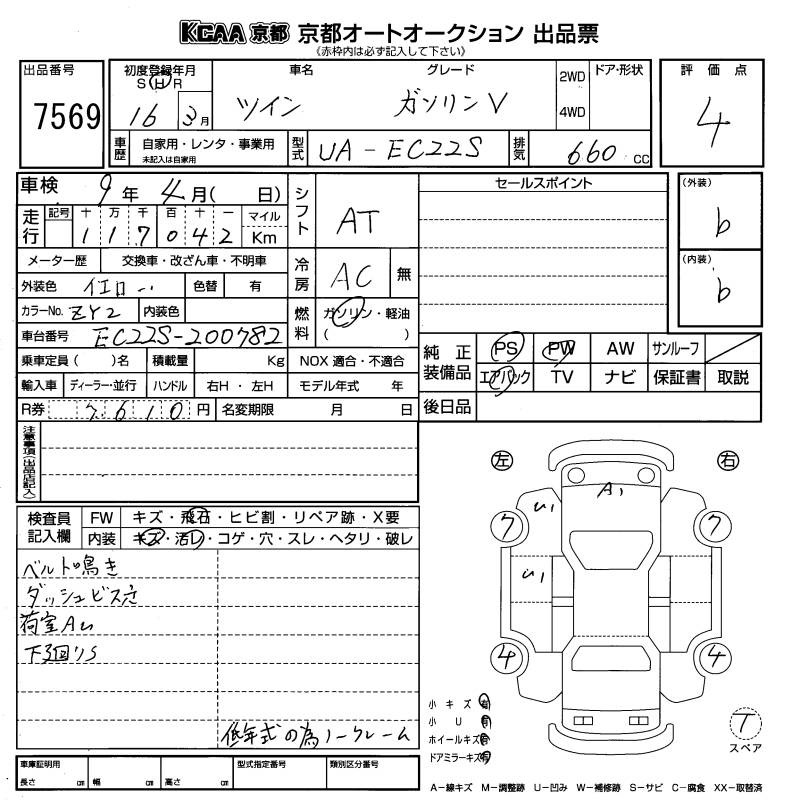 KCAA 京都 京都オートオークション 出品票
《赤枠内は必ず記入して下さい》
出品番号
7569
初度登録年月
S H R
16 3月
車名
ツイン
グレード
ガソリンV
2WD
4WD
ドア・形状
評価点
4
車歴
自家用・レンタ・事業用
未記入は自家用
型式
UA-EC22S
排気
660 cc
車検 9年 4月( 日)
走行
記号 十 万 千 百 十 一
1 1 7 0 4 2
マイル
Km
シフト
AT
セールスポイント
(外装)
b
(内装)
b
メーター歴 交換車・改ざん車・不明車
冷房
AC 無
外装色 イエロー 色替 有
カラーNo. ZY2 内装色
燃料
ガソリン・軽油
( )
車台番号 EC22S-200782
乗車定員 ( )名 積載量 Kg NOX 適合・不適合
輸入車 ディーラー・並行 ハンドル 右H・左H モデル年式 年
R券 7,610 円 名変期限 月 日
純正装備品
PS PW AW サンルーフ
エアバック TV ナビ 保証書 取説
後日品
注意事項(出品店記入)
検査員記入欄
FW キズ・飛石・ヒビ割・リペア跡・X要
内装 キズ・汚レ・コゲ・穴・スレ・ヘタリ・破レ
ベルト鳴き
ダッシュビス穴
荷室AU
下廻りS
低年式の為ノークレーム
左 右
A1
U1
U1
7 7
4 4
小キズ 有
小U 有
ホイールキズ 有
ドアミラーキズ 有
T
スペア
車庫証明用
長さ cm 幅 cm 高さ cm
型式指定番号
類別区分番号
A-線キズ M-調整跡 U-凹み W-補修跡 S-サビ C-腐食 XX-取替済